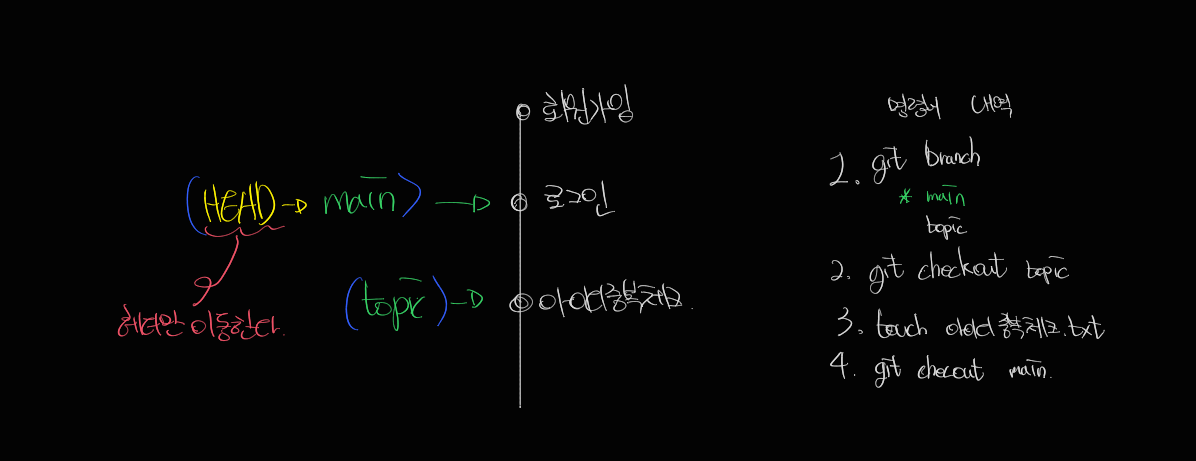 회원가입
(HEAD → main) → 로그인
(topic) → 아이디중복체크.
헤더만 이동한다.
명령어 내역
1. git branch
* main
topic
2. git checkout topic
3. touch 아이디중복체크.txt
4. git checout main.